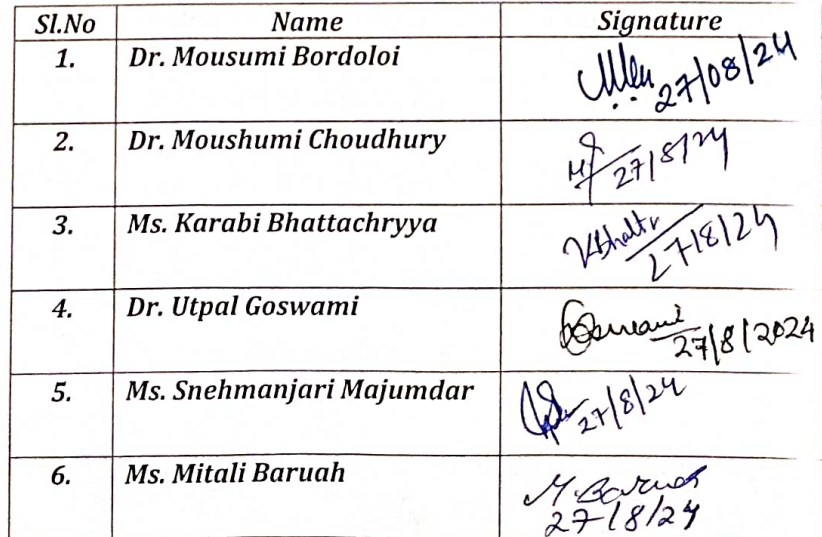 Sl.No Name Signature
1. Dr. Mousumi Bordoloi
27/08/24
2. Dr. Moushumi Choudhury
27/8/24
3. Ms. Karabi Bhattachryya
KBhatt
27/8/24
4. Dr. Utpal Goswami
Goswami
27/8/2024
5. Ms. Snehmanjari Majumdar
27/8/24
6. Ms. Mitali Baruah
M. Baruah
27/8/24